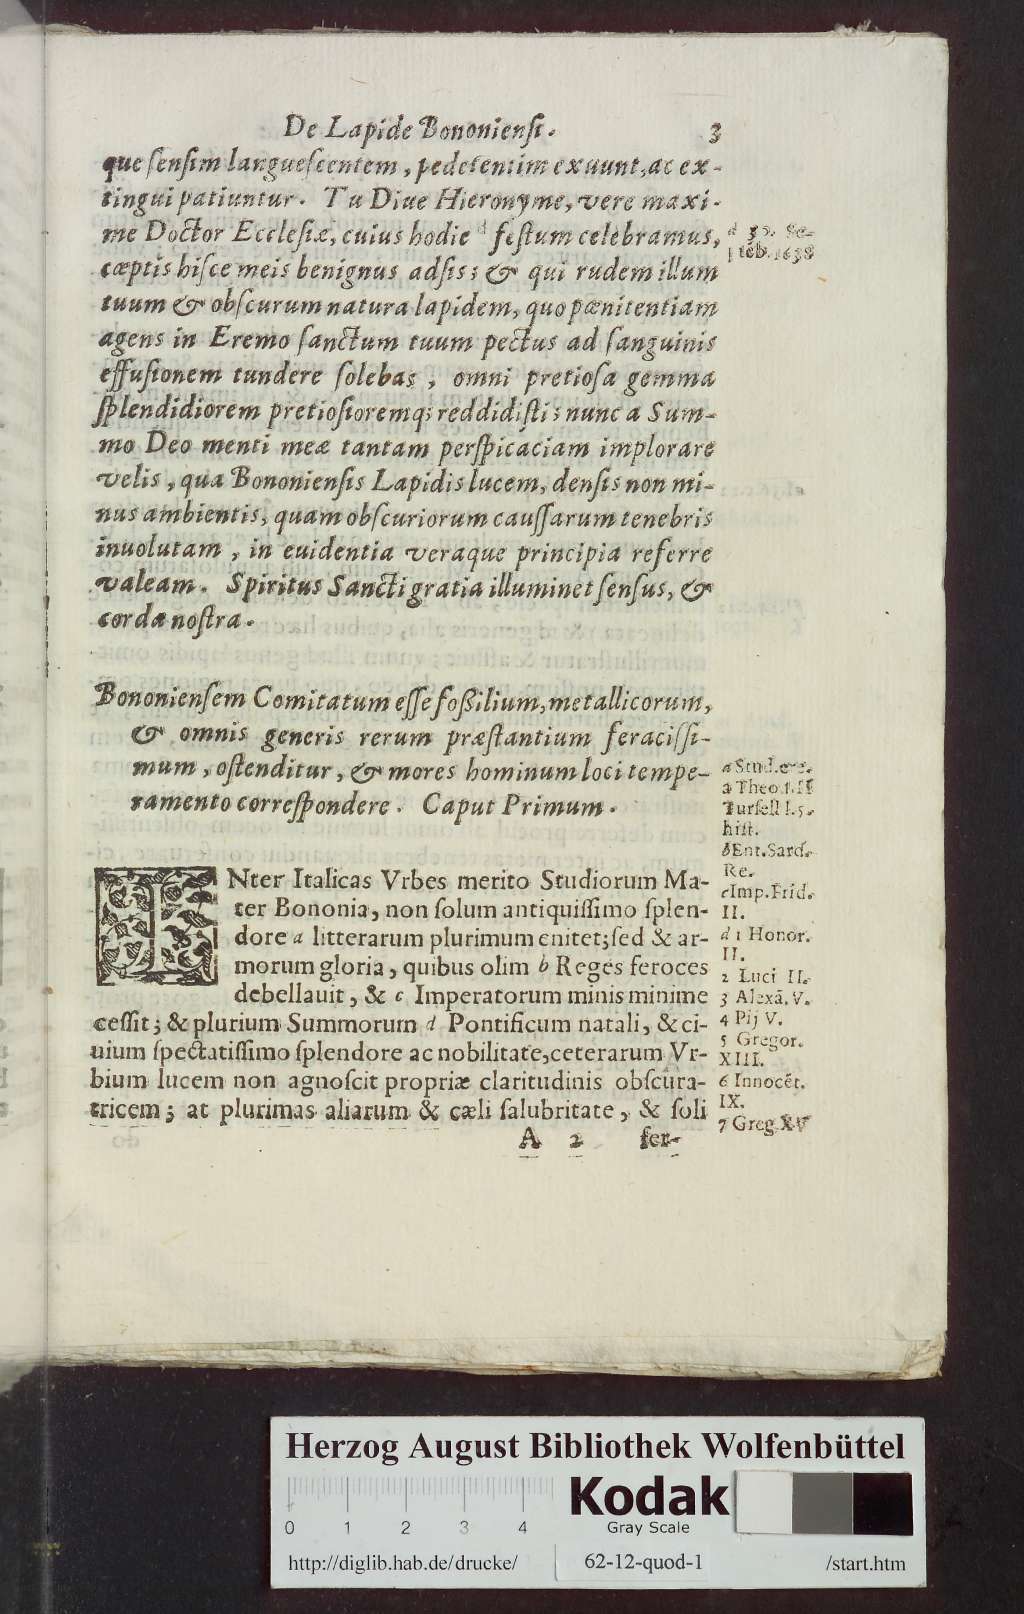 De Lapide Bononiensi. 3
que sensim languescentem, pedetentim exuunt, ac ex-
tingui patiuntur. Tu Diue Hieronyme, vere maxi-
me Doctor Ecclesiæ, cuius hodie d festum celebramus,
cœptis hisce meis benignus adsis; & qui rudem illum
tuum & obscurum natura lapidem, quo pœnitentiam
agens in Eremo sanctum tuum pectus ad sanguinis
effusionem tundere solebas, omni pretiosa gemma
splendidiorem pretiosioremq; reddidisti; nunc a Sum-
mo Deo menti meæ tantam perspicaciam implorare
velis, qua Bononiensis Lapidis lucem, densis non mi-
nus ambientis, quam obscuriorum caussarum tenebris
inuolutam, in euidentia veraque principia referre
valeam. Spiritus Sancti gratia illuminet sensus, &
corda nostra.
d 30. Se-
pteb. 1638
Bononiensem Comitatum esse foßilium, metallicorum,
& omnis generis rerum præstantium feracissi-
mum, ostenditur, & mores hominum loci tempe-
ramento correspondere. Caput Primum.
INter Italicas Vrbes merito Studiorum Ma-
ter Bononia, non solum antiquissimo splen-
dore a litterarum plurimum enitet; sed & ar-
morum gloria, quibus olim b Reges feroces
debellauit, & c Imperatorum minis minime
cessit; & plurium Summorum d Pontificum natali, & ci-
uium spectatissimo splendore ac nobilitate, ceterarum Vr-
bium lucem non agnoscit propriæ claritudinis obscura-
tricem; at plurimas aliarum & cæli salubritate, & soli
A 2 fer-
a Stud. ere.
a Theo. I. II
Tursell l. 5.
hist.
b Ent. Sard.
Re.
c Imp. Frid.
II.
d 1 Honor.
II.
2 Luci II.
3 Alexā. V.
4 Pij V.
5 Gregor.
XIII.
6 Innocēt.
IX.
7 Greg. XV
Herzog August Bibliothek Wolfenbüttel
0 1 2 3 4
Kodak
Gray Scale
http://diglib.hab.de/drucke/ 62-12-quod-1 /start.htm